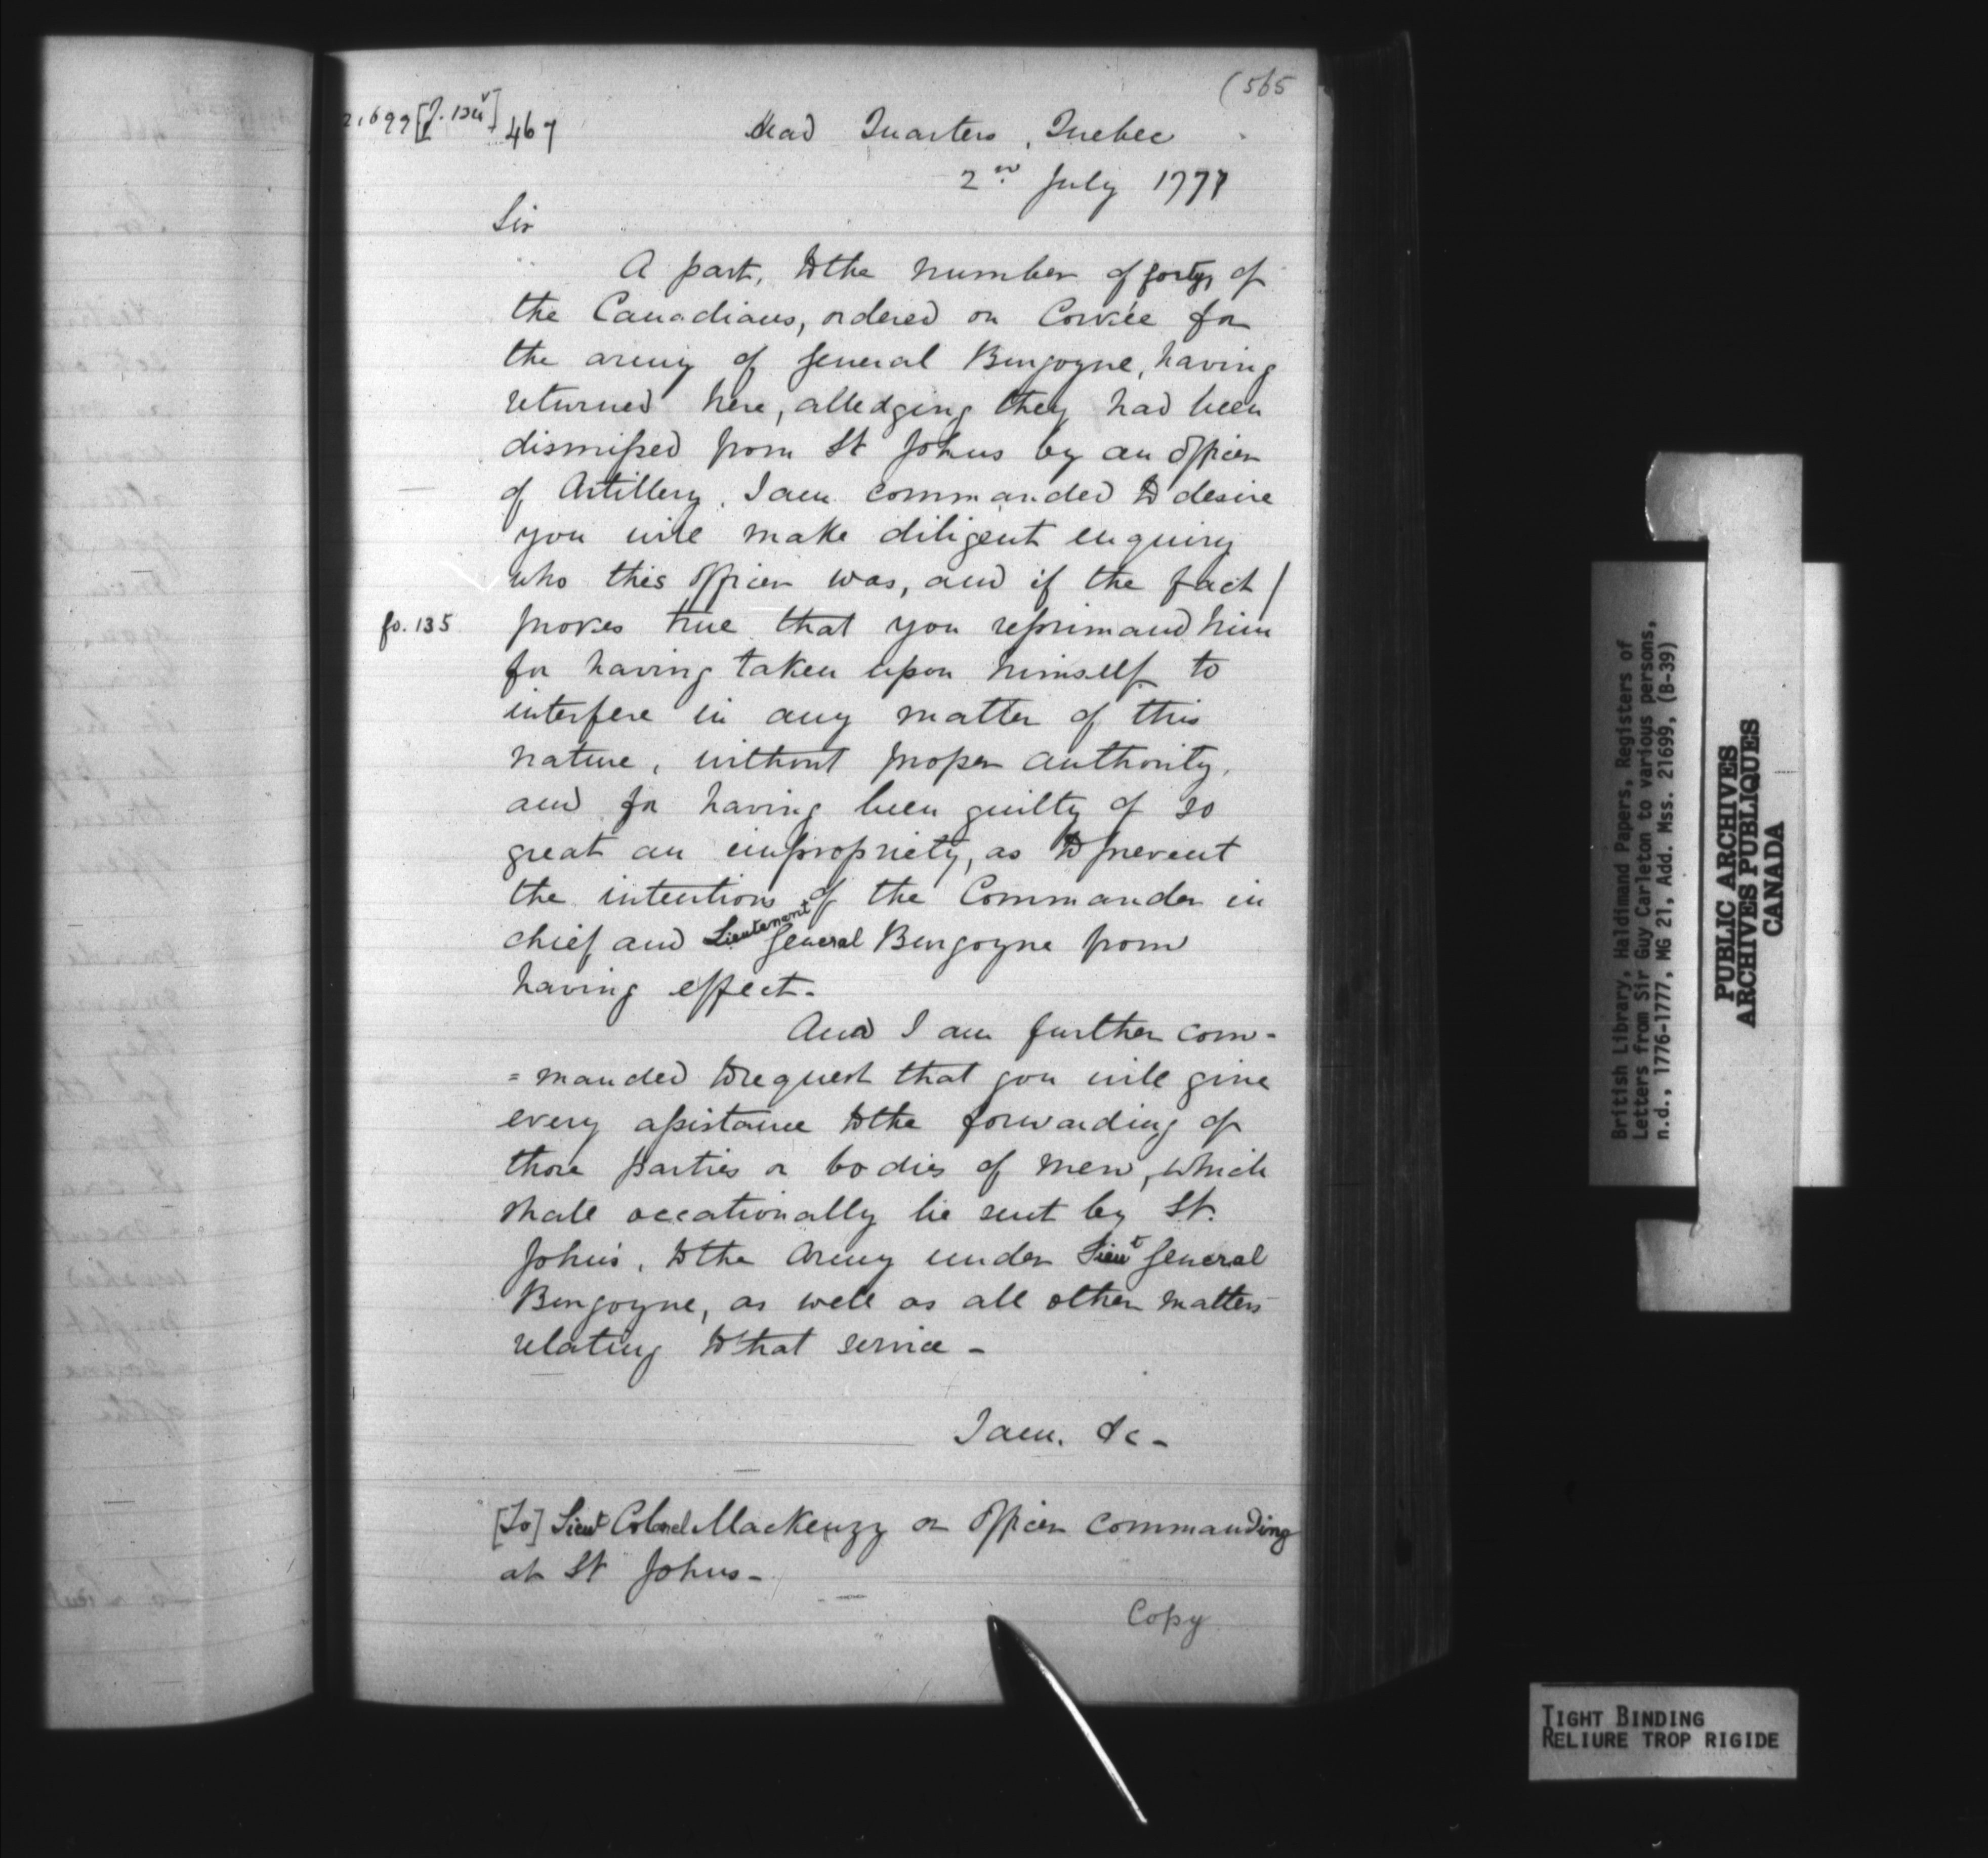 (565
21699 [f. 134v] 467
Head Quarters, Quebec
2nd July 1777
Sir
A part, to the number of forty, of
the Canadians, ordered on Corvée for
the army of General Burgoyne, having
returned here, alledging they had been
dismissed from St Johns by an officer
of Artillery. I am commanded to desire
you will make diligent enquiry
who this officer was, and if the fact /
fo. 135 proves true that you reprimand him
for having taken upon himself to
interfere in any matter of this
nature, without proper authority,
and for having been guilty of so
great an impropriety, as to prevent
the intentions of the Commander in
chief and Lieutenant General Burgoyne from
having effect -
And I am further com-
=manded to request that you will give
every assistance to the forwarding of
those parties or bodies of men, which
shall occationally be sent by St.
John's, to the Army under Lieut General
Burgoyne, as well as all other matters
relating to that service -
I am, &c -
[To] Lieut Colonel MacKenzy or officer commanding
at St Johns -
Copy
British Library, Haldimand Papers, Registers of
Letters from Sir Guy Carleton to various persons,
n.d., 1776-1777, MG 21, Add. Mss. 21699, (B-39)
PUBLIC ARCHIVES
ARCHIVES PUBLIQUES
CANADA
TIGHT BINDING
RELIURE TROP RIGIDE